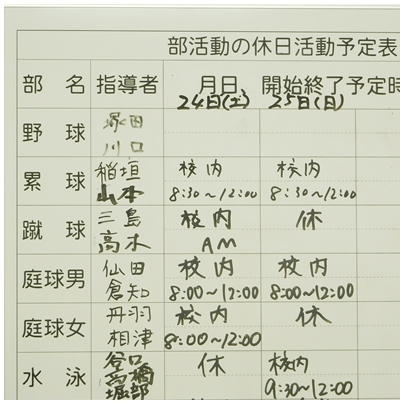 部活動の休日活動予定表
部名 指導者 月日 開始終了予定時
24日(土) 25日(日)
野球 塚田
川口
累球 稲垣 校内 校内
山本 8:30~12:00 8:30~12:00
蹴球 三島 校内 休
高木 AM
庭球男 仙田 校内 校内
倉知 8:00~12:00 8:00~12:00
庭球女 丹羽 校内 休
相津 8:00~12:00
水泳 谷口 休 校内
高橋
堀部 9:30~12:00